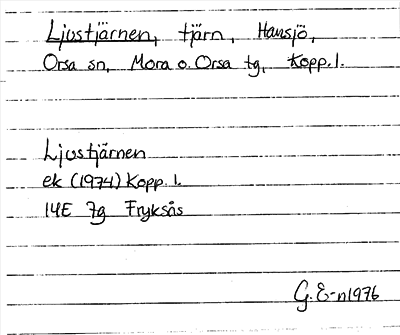 Ljustjärnen, tjärn, Hansjö,
Orsa sn, Mora o. Orsa tg, Kopp. l.
Ljustjärnen
ek (1974) Kopp. l.
14E 7g Fryksås
G. E-n 1976